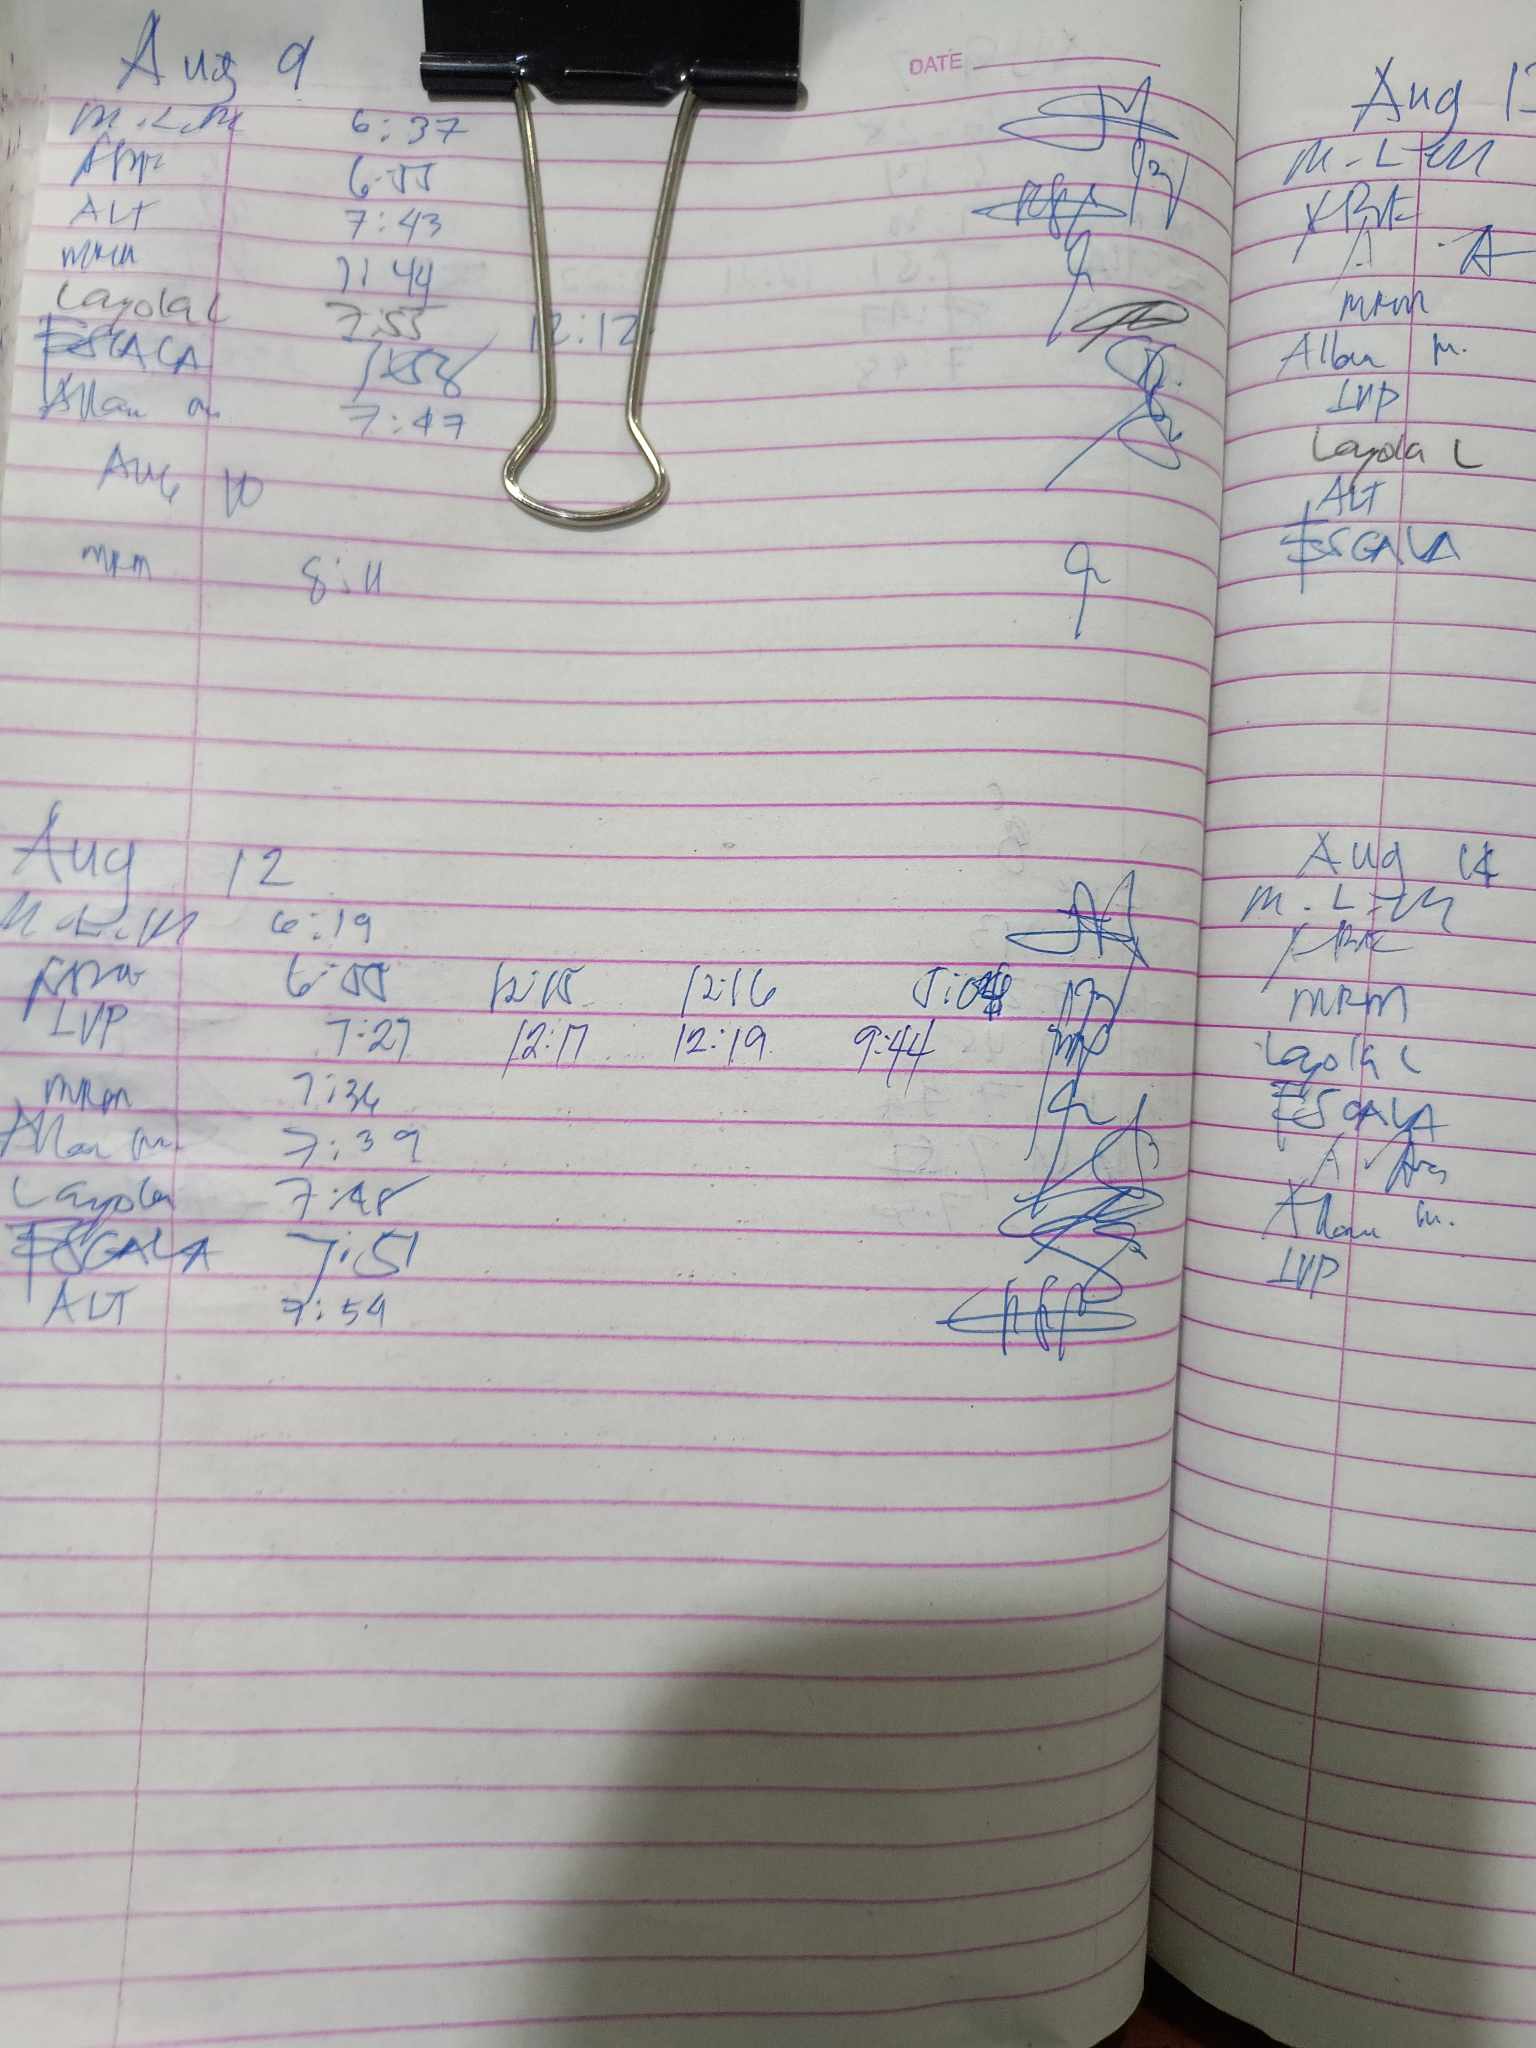 DATE
Aug 9
M.L.M 6:37
6:55
ALT 7:43
MRM 7:44
Layola L 7:53 12:12
ESCALA 7:58
Allan m. 7:47
Aug 10
MRM 8:11
Aug 12
M.L.M 6:19
6:55 12:15 12:16
LVP 7:27 12:17 12:19 9:44
MRM 7:36
Allan m. 7:39
Layola 7:48
ESCALA 7:51
ALT 7:54
Aug
M.L.M
MRM
Allan m.
LVP
Layola L
ALT
ESCALA
Aug 14
M.L.M
MRM
Layola L
ESCALA
Allan m.
LVP